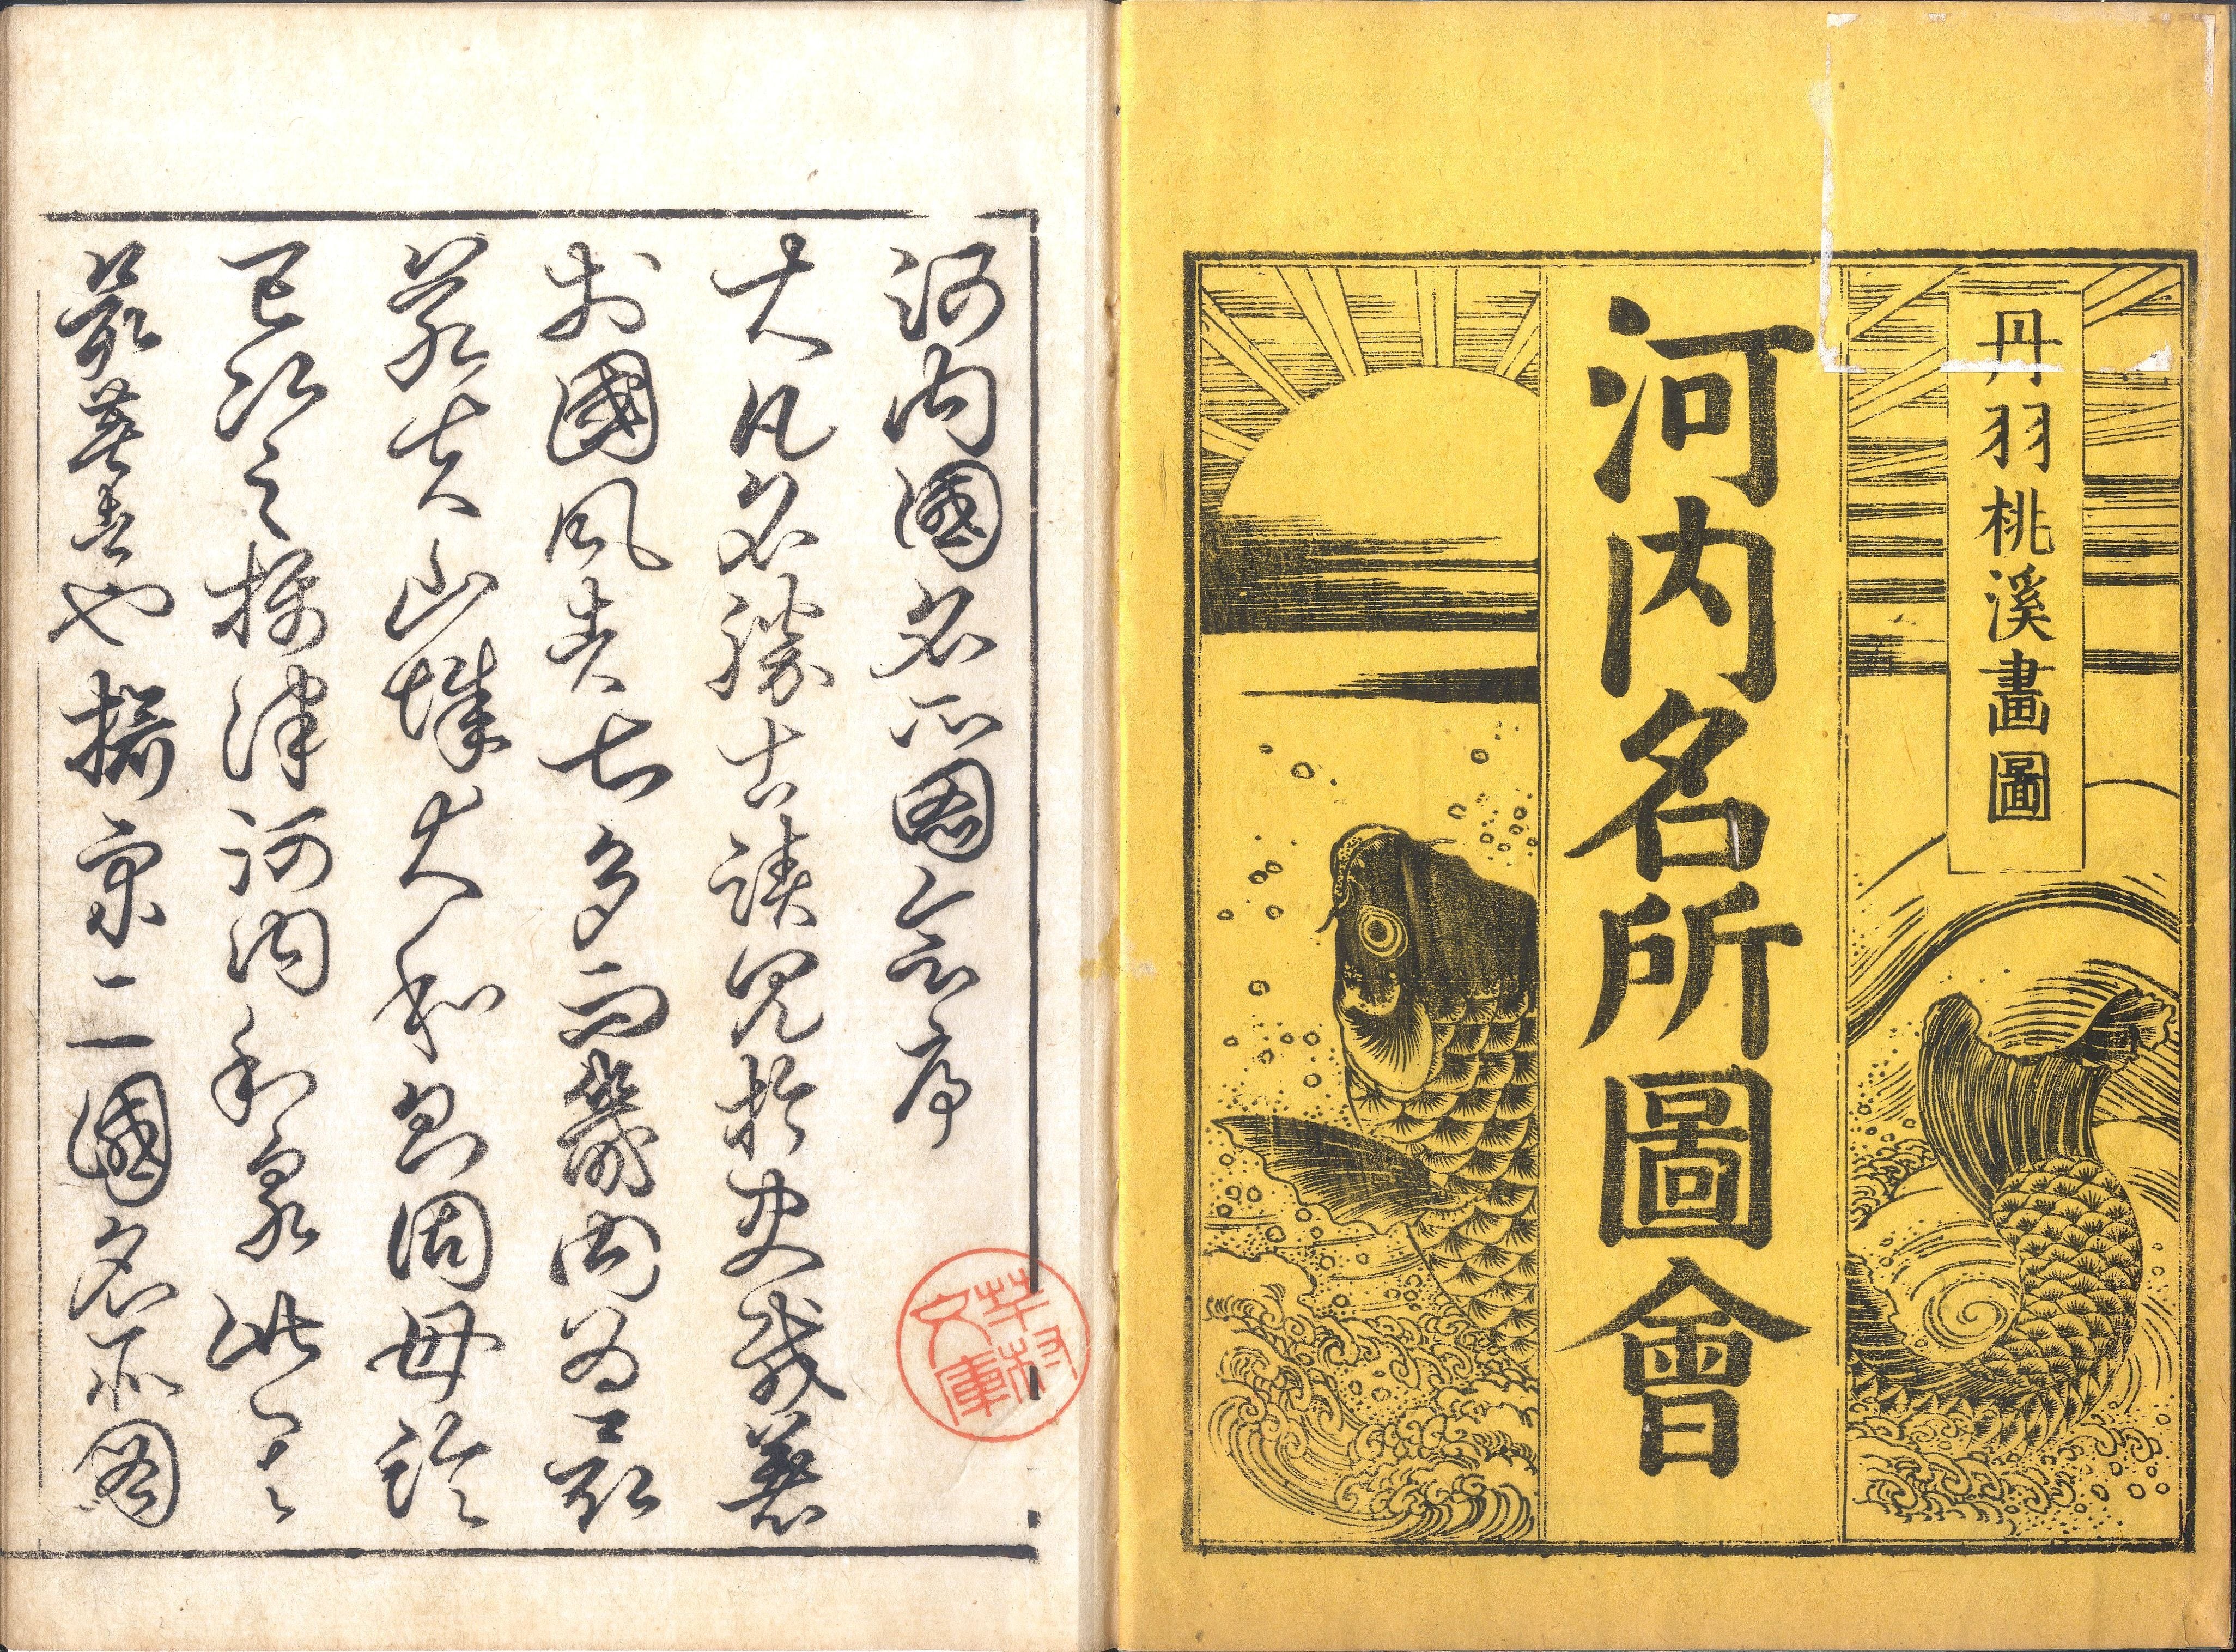 丹羽桃溪畫圖
河内名所圖會
河内國名所圖會序
大凡名勝古蹟見於史或著
於國風者多而畿内為最
若夫山城大和則固毋論
已次之攝津河内和泉此
最著者也攝泉二國名所圖
文庫